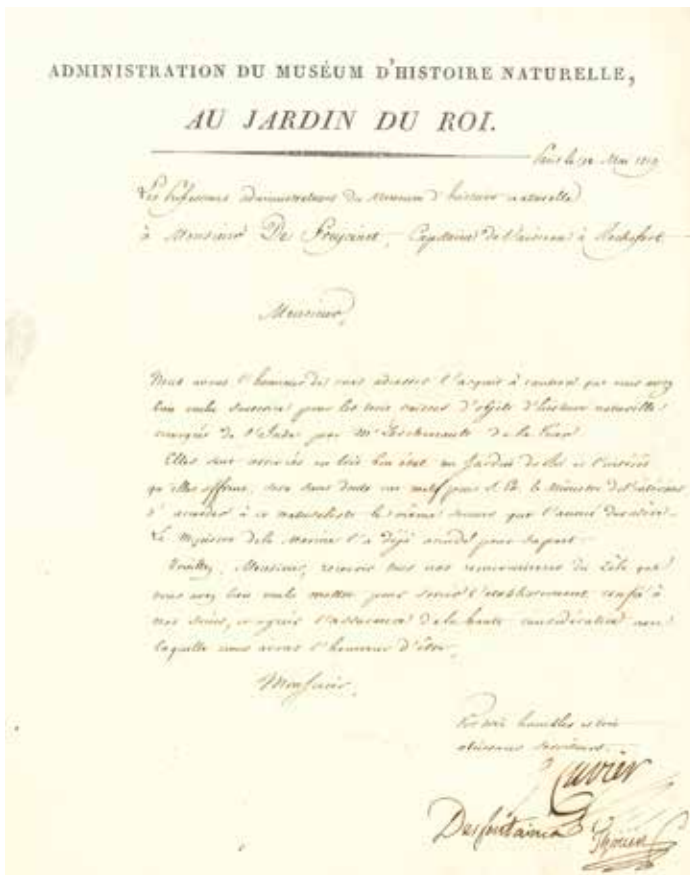 ADMINISTRATION DU MUSÉUM D'HISTOIRE NATURELLE,
AU JARDIN DU ROI.
Paris le Mai 1819
Les Professeurs administrateurs du Museum d'histoire naturelle
à Monsieur De Capitaine de Vaisseau à Rochefort
Monsieur,
Nous avons l'honneur de vous adresser l'acquit à caution que vous avez
bien voulu pour les trois caisses d'objets d'histoire naturelle
envoyées de l'Inde par Mr Leschenault de la Tour
Elles sont arrivées en très bon état au Jardin du Roi et l'intérêt
qu'elles offrent, sera sans doute un motif pour S. Ex. le Ministre de l'intérieur
d'accorder à ce naturaliste le même secours que l'année dernière.
Le Ministre de la Marine l'a déjà accordé pour sa part.
Veuillez, Monsieur, recevoir tous nos remerciemens du Zèle que
vous avez bien voulu mettre pour servir l'établissement confié à
nos soins, et agréer l'assurance de la haute considération avec
laquelle nous avons l'honneur d'être,
Monsieur,
Vos très humbles et très
obéissans serviteurs
Cuvier
Desfontaines Thouin